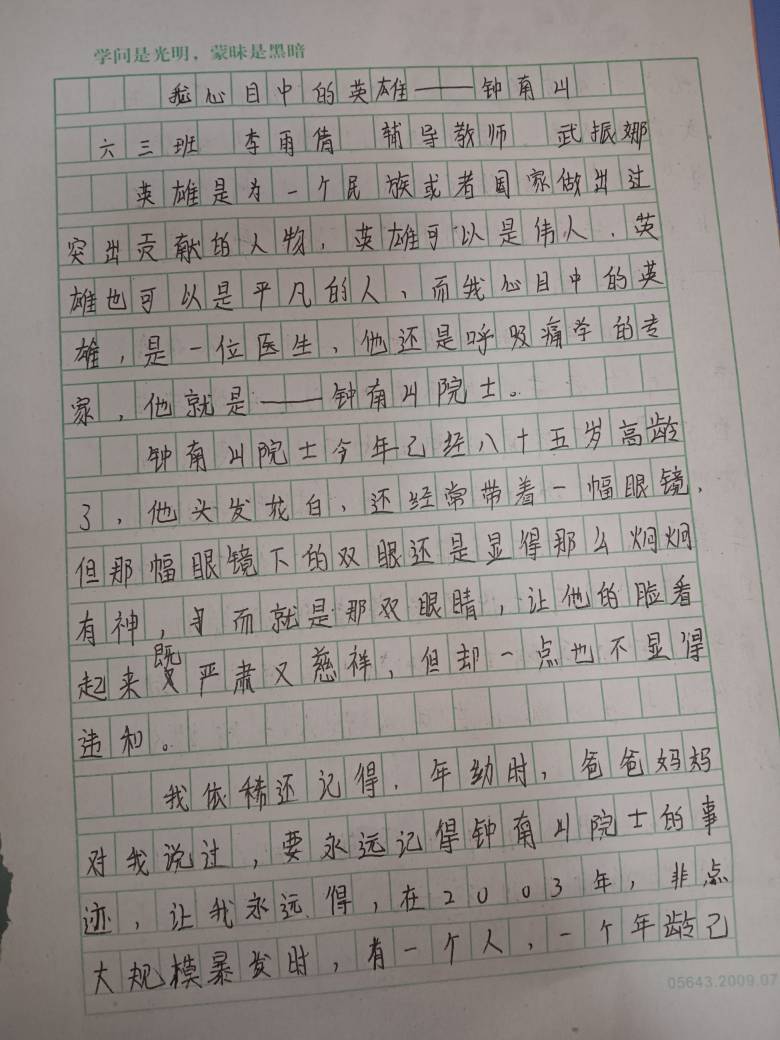 学问是光明，蒙昧是黑暗
我心目中的英雄——钟南山
六三班 李雨倩 辅导教师 武振娜
英雄是为一个民族或者国家做出过
突出贡献的人物，英雄可以是伟人，英
雄也可以是平凡的人，而我心目中的英
雄，是一位医生，他还是呼吸病学的专
家，他就是——钟南山院士。
钟南山院士今年已经八十五岁高龄
了，他头发花白，还经常带着一幅眼镜，
但那幅眼镜下的双眼还是显得那么炯炯
有神，而就是那双眼睛，让他的脸看
起来既严肃又慈祥，但却一点也不显得
违和。
我依稀还记得，年幼时，爸爸妈妈
对我说过，要永远记得钟南山院士的事
迹，让我永远得，在2003年，非点
大规模暴发时，有一个人，一个年龄已
05643.2009.07